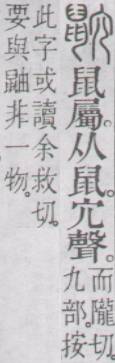 鼠屬。从鼠。宂聲。
而隴切。
九部。按
此字或讀余救切。
要與鼬非一物。